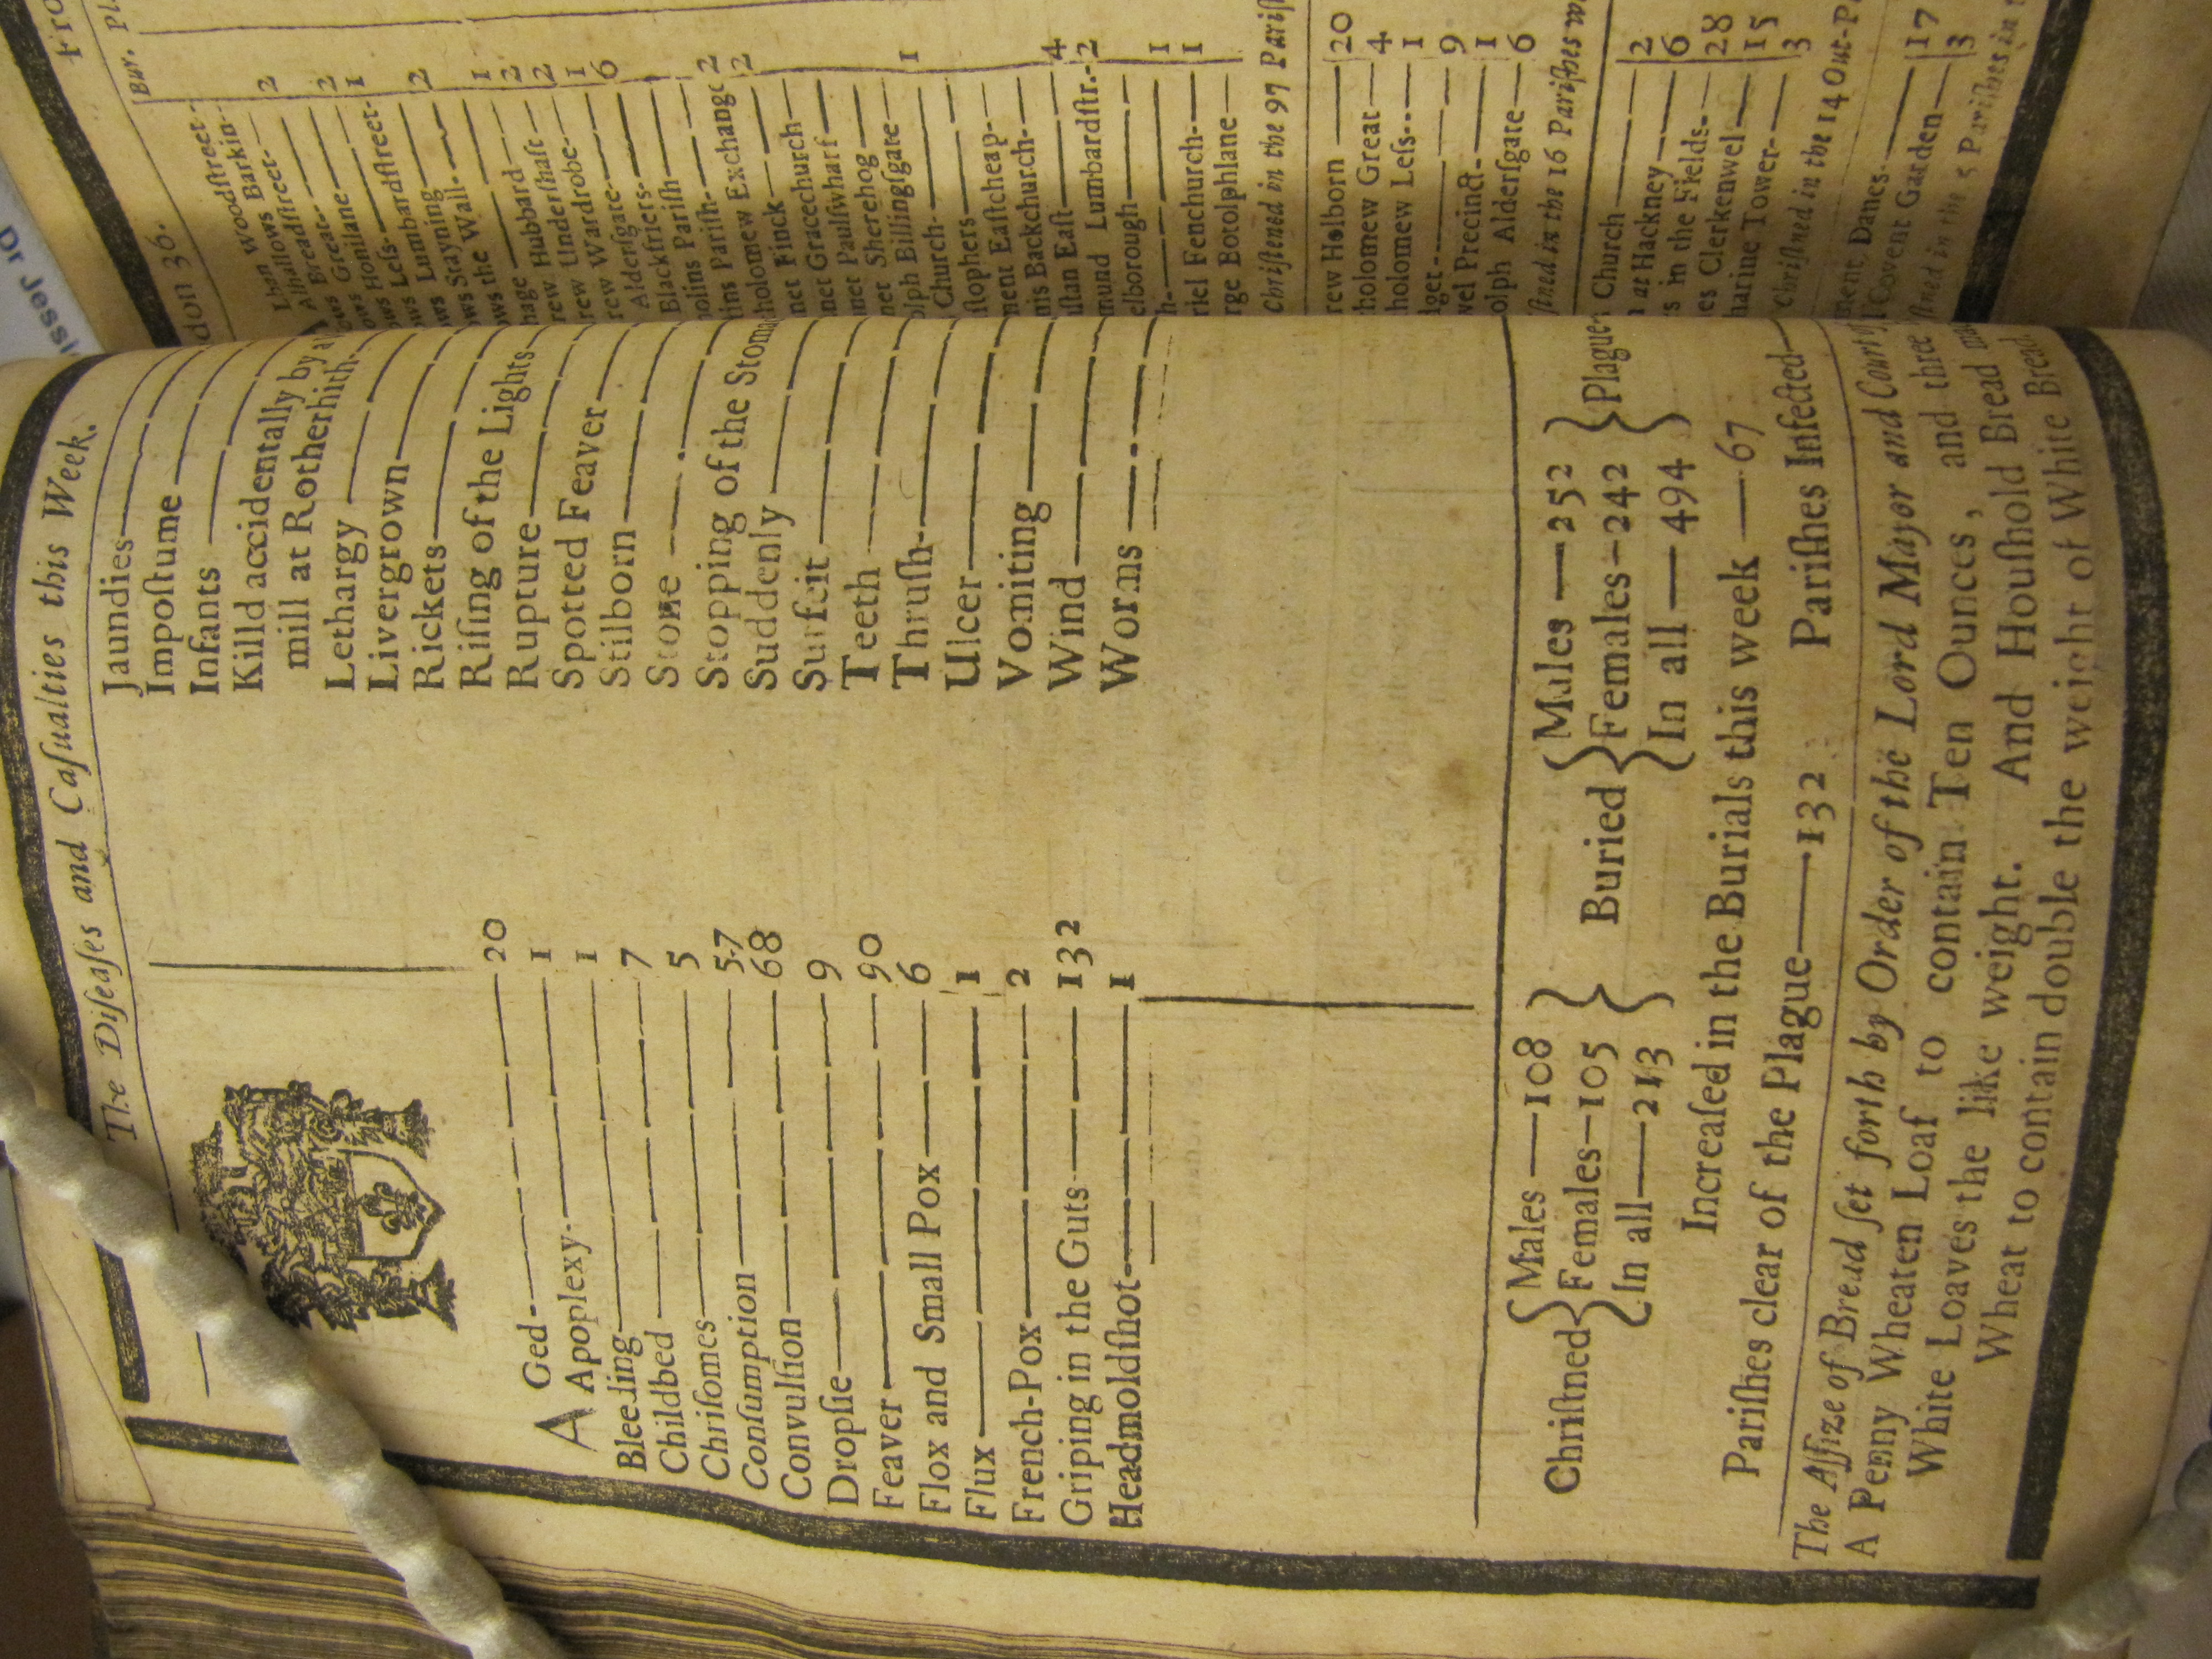 The Diſeaſes and Caſualties this Week.
AGed 20
Apoplexy 1
Bleeding 1
Childbed 7
Chriſomes 5
Conſumption 57
Convulſion 68
Dropſie 9
Feaver 90
Flox and Small Pox 6
Flux 1
French-Pox 2
Griping in the Guts 132
Headmoldſhot 1
Jaundies
Impoſtume
Infants
Killd accidentally by a
mill at Rotherhith
Lethargy
Livergrown
Rickets
Riſing of the Lights
Rupture
Spotted Feaver
Stilborn
Stone
Stopping of the Stoma
Suddenly
Surfeit
Teeth
Thruſh
Ulcer
Vomiting
Wind
Worms
Chriſtned { Males 108
Females 105
In all 213 }
Buried { Males 252
Females 242
In all 494 } Plague
Increaſed in the Burials this week 67
Pariſhes clear of the Plague 132 Pariſhes Infected
The Aſſize of Bread ſet forth by Order of the Lord Major and Court of
A Penny Wheaten Loaf to contain Ten Ounces, and three
White Loaves the like weight. And Houſhold Bread
Wheat to contain double the weight of White Bread
Dr Jessi
Fro
don 36.
Bur. Pl
lban Woodſtreet
Alhallows Barkin 2
Breadſtreet
ows Great 2
ows Honilane 1
ows Leſs
ows Lumbardſtreet 2
ows Stayning
ows the Wall 1
hage 2
rew Hubbard 2
rew Underſhaft 1
rew Wardrobe 6
Alderſgate
Blackfriers
nolins Pariſh 2
tins Pariſh 2
tholomew Exchange
net Finck
net Gracechurch
net Paulſwharf
net Sherehog 1
olph Billingſgate
Church
ſtophers
ment Eaſtcheap
nis Backchurch 4
uſtan Eaſt 2
mund Lumbardſtr.
elborough 1
h 1
riel Fenchurch
rge Botolphlane
Chriſtened in the 97 Pariſ
rew Holborn 20
tholomew Great 4
tholomew Leſs 1
lget 9
wel Precinct 1
olph Alderſgate 6
ſtned in the 16 Pariſhes w
Church 2
n at Hackney 6
s in the Fields 28
es Clerkenwel 15
harine Tower 3
Chriſtned in the 14 Out-P
ment, Danes 17
l Covent Garden 3
ſtned in the 5 Pariſhes in